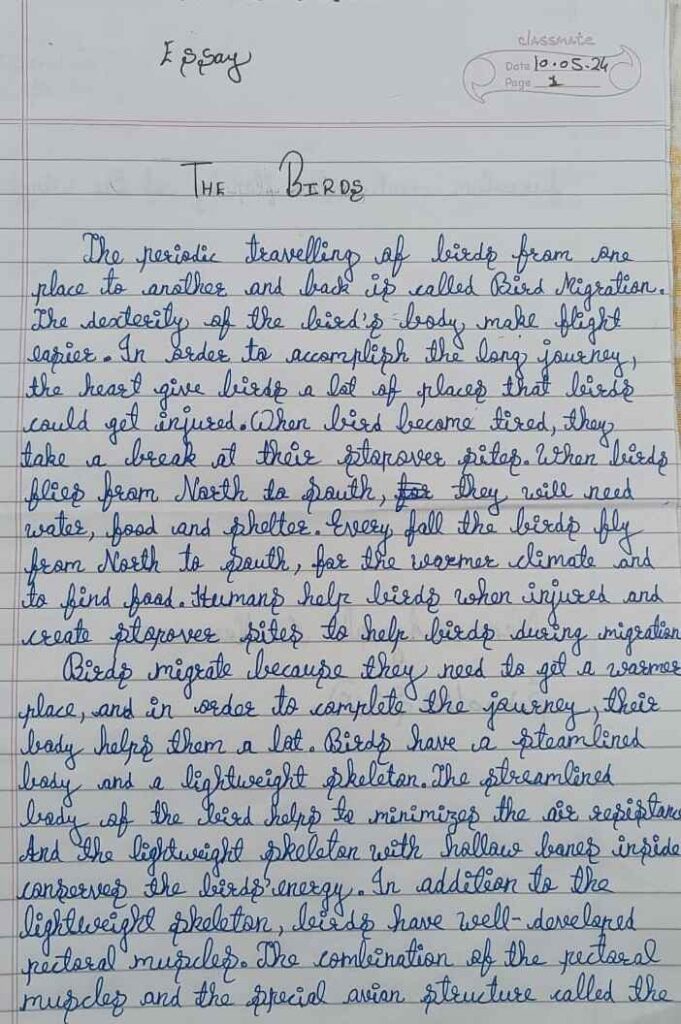 Essay
classmate
Date 10.05.24
Page 1
The Birds
The periodic travelling of birds from one
place to another and back is called Bird Migration.
The dexterity of the bird's body make flight
easier. In order to accomplish the long journey,
the heart give birds a lot of places that birds
could get injured. When bird become tired, they
take a break at their stopover sites. When birds
flies from North to South, they will need
water, food and shelter. Every fall the birds fly
from North to South, for the warmer climate and
to find food. Humans help birds when injured and
create stopover sites to help birds during migration
Birds migrate because they need to get a warmer
place, and in order to complete the journey, their
body helps them a lot. Birds have a steamlined
body and a lightweight skeleton. The streamlined
body of the bird helps to minimizes the air resistanc
And the lightweight skeleton with hollow bones inside
conserves the birds' energy. In addition to the
lightweight skeleton, birds have well-developed
pectoral muscles. The combination of the pectoral
muscles and the special avian structure called the